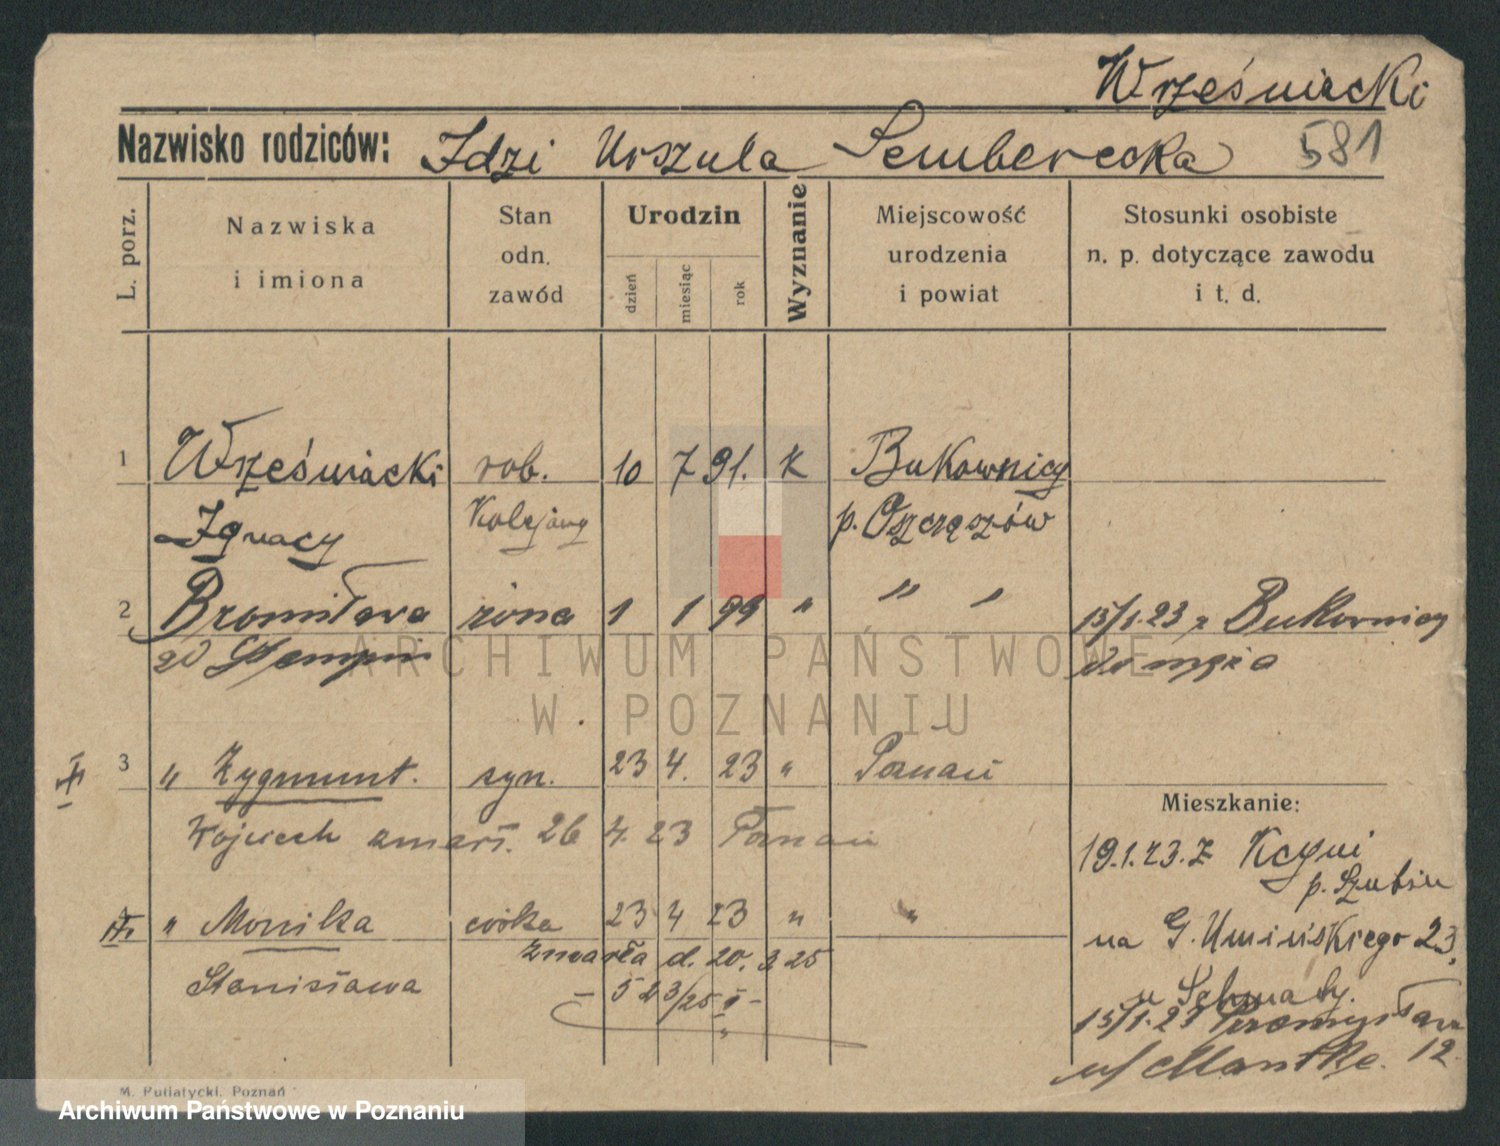 Wrześniacki
Nazwisko rodziców: Idzi Urszula Semberecka 581
L. porz.
Nazwiska i imiona
Stan odn. zawód
Urodzin
dzień
miesiąc
rok
Wyznanie
Miejscowość urodzenia i powiat
Stosunki osobiste n. p. dotyczące zawodu i t. d.
1 Wrześniacki rob. 10 7 91. K Bukownicy
Ignacy Kolejowy p. Oszczęszów
2 Bronisława żona 1 1 99 " " " 15/1.23 z Bukownicy
do męża
3 " Zygmunt. syn. 23 4. 23 " Poznań
Mieszkanie:
Wojciech zmarł. 26 4. 23 Poznań
19.1.23. z Kcyni
p. Szubin
" Monika córka 23 4 23 " "
na G. Umińskiego 23,
zmarła d. 20. 3 25
Stanisława
u Schwaby.
15/1.23 Przemysława
12
u/ Mantke.
M. Putiatycki, Poznań
ARCHIWUM PAŃSTWOWE
W POZNANIU
Archiwum Państwowe w Poznaniu